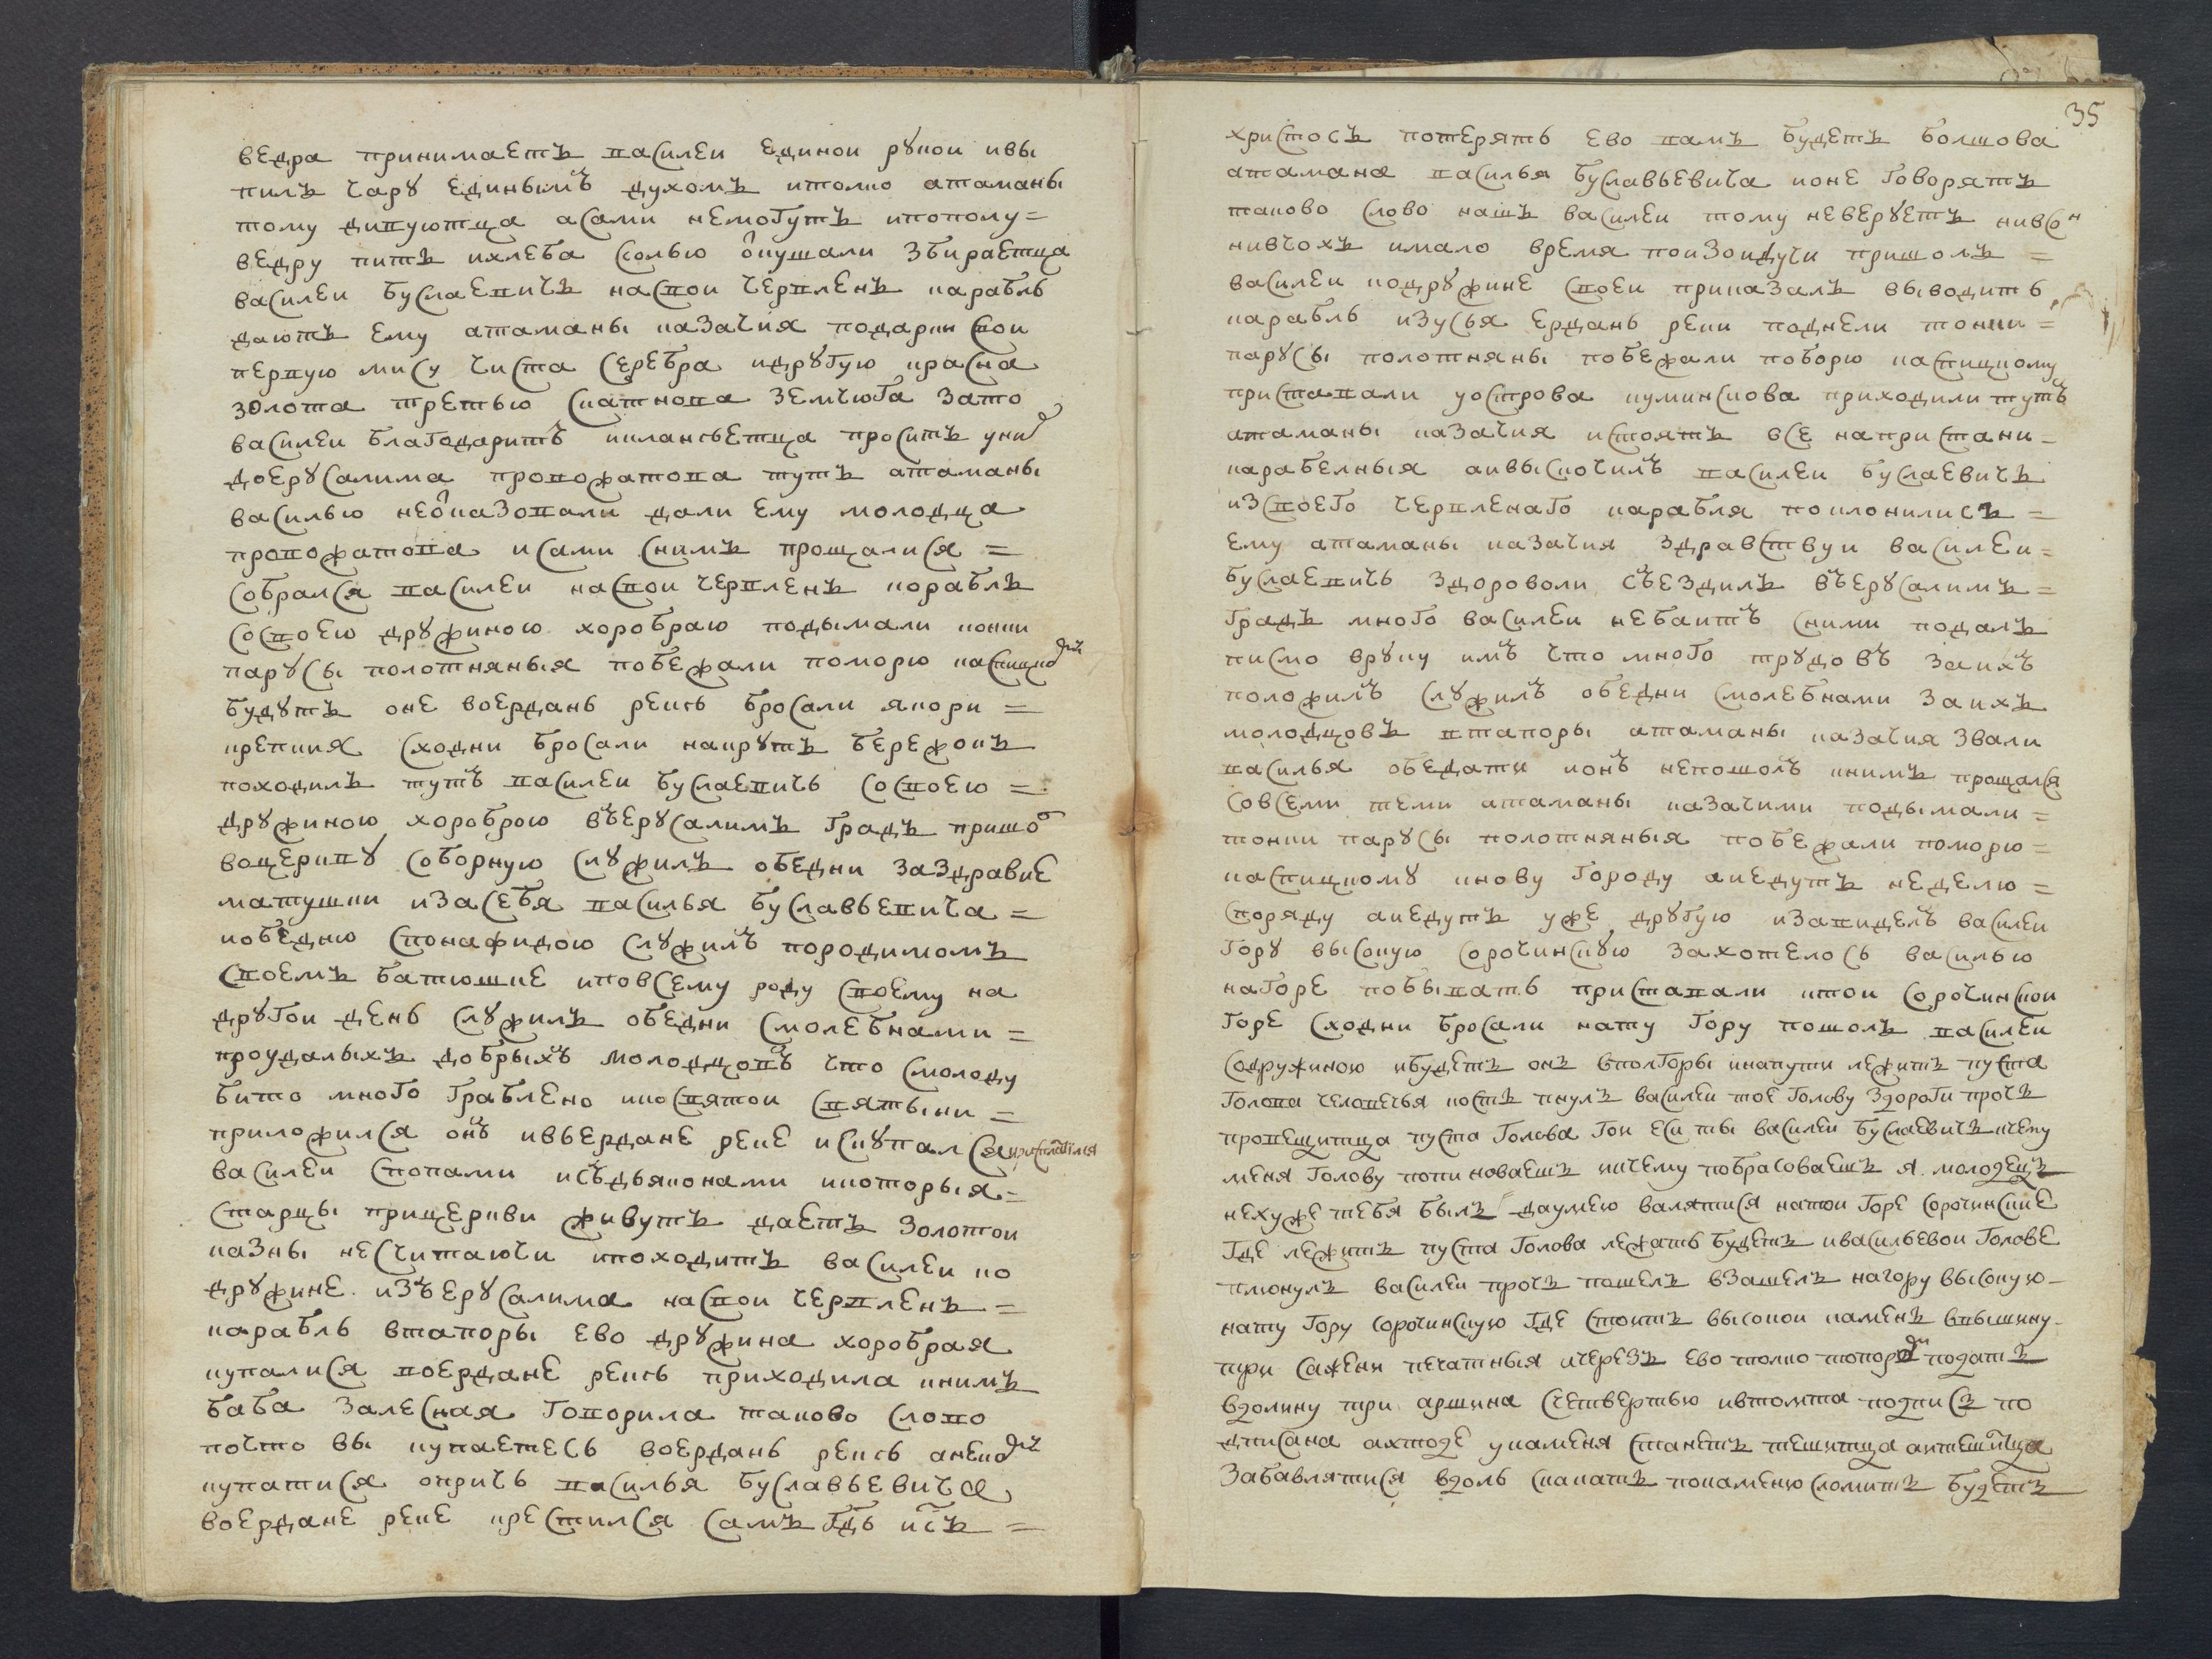 ведра принимаетъ василеи единои рукои ивы
пилъ чару единымъ духомъ итолко атаманы
тому дивуютца асами немогутъ ипополу=
ведру питъ ихлеба солью откушали збираетца
василеи буслаевичъ насвои червленъ карабль
даютъ ему атаманы казачия подарки свои
первую мису чиста серебра идругую красна
золота третью скатнова земчюга зато
василеи благодаритъ икланеетца проситъ уних
доерусалима провожатова тутъ атаманы
василью неотказовали дали ему молодца
провожатова исами снимъ прощалися =
собрался василеи насвои червленъ корабль
соспоею дружиною хороброю подымали тонки
парусы полотняныя побежали поморю каспицко
будутъ оне воердань реки бросали якори =
крепкия сходни бросали накрутъ бережокъ
походилъ тутъ василеи буслаевичь сосвоею =
дружиною хороброю въерусалимъ градъ пришо
воцеркву соборную служилъ обедни заздравие
матушки изасебя василья буславьевича =
иобедню спонафидою служилъ породимомъ
своемъ батюшке иповсему роду своему на
другои день служилъ обедни смолебнами =
проудалыхъ добрыхъ молодцовъ что смолоду
бито много граблено икосвятои святыни =
приложился онъ ивъердане реке искупался
василеи спопами исъдьяконами икоторыя=
старцы прицеркви живутъ даетъ золотои
казны несчитаючи ипоходитъ василеи ко
дружине изъерусалима насвои червленъ =
карабль втапоры ево дружина хоробрая
купалися воердане реки приходила книмъ
баба залесная говорила таково слово
почто вы купаетесь воердань реки анеко
купатися опричь василья буславьевича
воердане реке крестился самъ гдь исъ =
35
христосъ потерять ево вамъ будетъ болшова
атамана василья буславьевича ионе говорятъ
таково слово нашъ василеи тому неверуетъ нивсон
нивчохъ имало время поизоидучи пришолъ =
василеи кодружине своеи приказалъ выводить
карабль изусья ердань реки поднели тонки =
парусы полотняны побежали поморю каспицкому
приставали уострова куминскова приходили тутъ
атаманы казачия истоятъ все напристани=
карабелныя аивыскочилъ василеи буслаевичъ
изсвоего червленаго карабля поклонилисъ =
ему атаманы казачия здравствуи василеи=
буслаевичь здороволи съездилъ въерусалимъ=
градъ много василеи небаитъ сними подалъ
писмо вруку имъ что много трудовъ заихъ
положилъ служилъ обедни смолебнами заихъ
молодцовъ втапоры атаманы казачия звали
василья обедати ионъ непошолъ книмъ прощался
совсеми теми атаманы казачими подымали =
тонки парусы полотняныя побежали поморю=
каспицкому кнову городу аиедутъ неделю =
споряду аиедутъ уже другую изавиделъ василеи
гору высокую сорочинскую захотелось василью
нагоре побывать приставали ктои сорочинскои
горе сходни бросали нату гору пошолъ василеи
содружиною ибудетъ онъ вполгоры инапути лежитъ пуста
голова человечья костъ пнулъ василеи тое голову здороги прочъ
провещитца пуста голова гои еси ты василеи буслаевичъ кчему
меня голову попиноваешъ ичему побрасоваешъ я молодецъ
нехуже тебя былъ даумею валятися натои горе сорочинские
где лежитъ пуста голова лежать будетъ ивасильевои голове
плюнулъ василеи прочъ пошелъ взашелъ нагору высокую=
нату гору сорочинскую где стоитъ высокои каменъ ввышину=
три сажени печатныя ичерезъ ево толко топоромъ подать
вдолину три аршина счетвертью ивтомта подписъ по
дписана ахтоде укаменя станетъ тешитца аитешитца
забавлятися вдоль скакатъ покаменю сломитъ будетъ